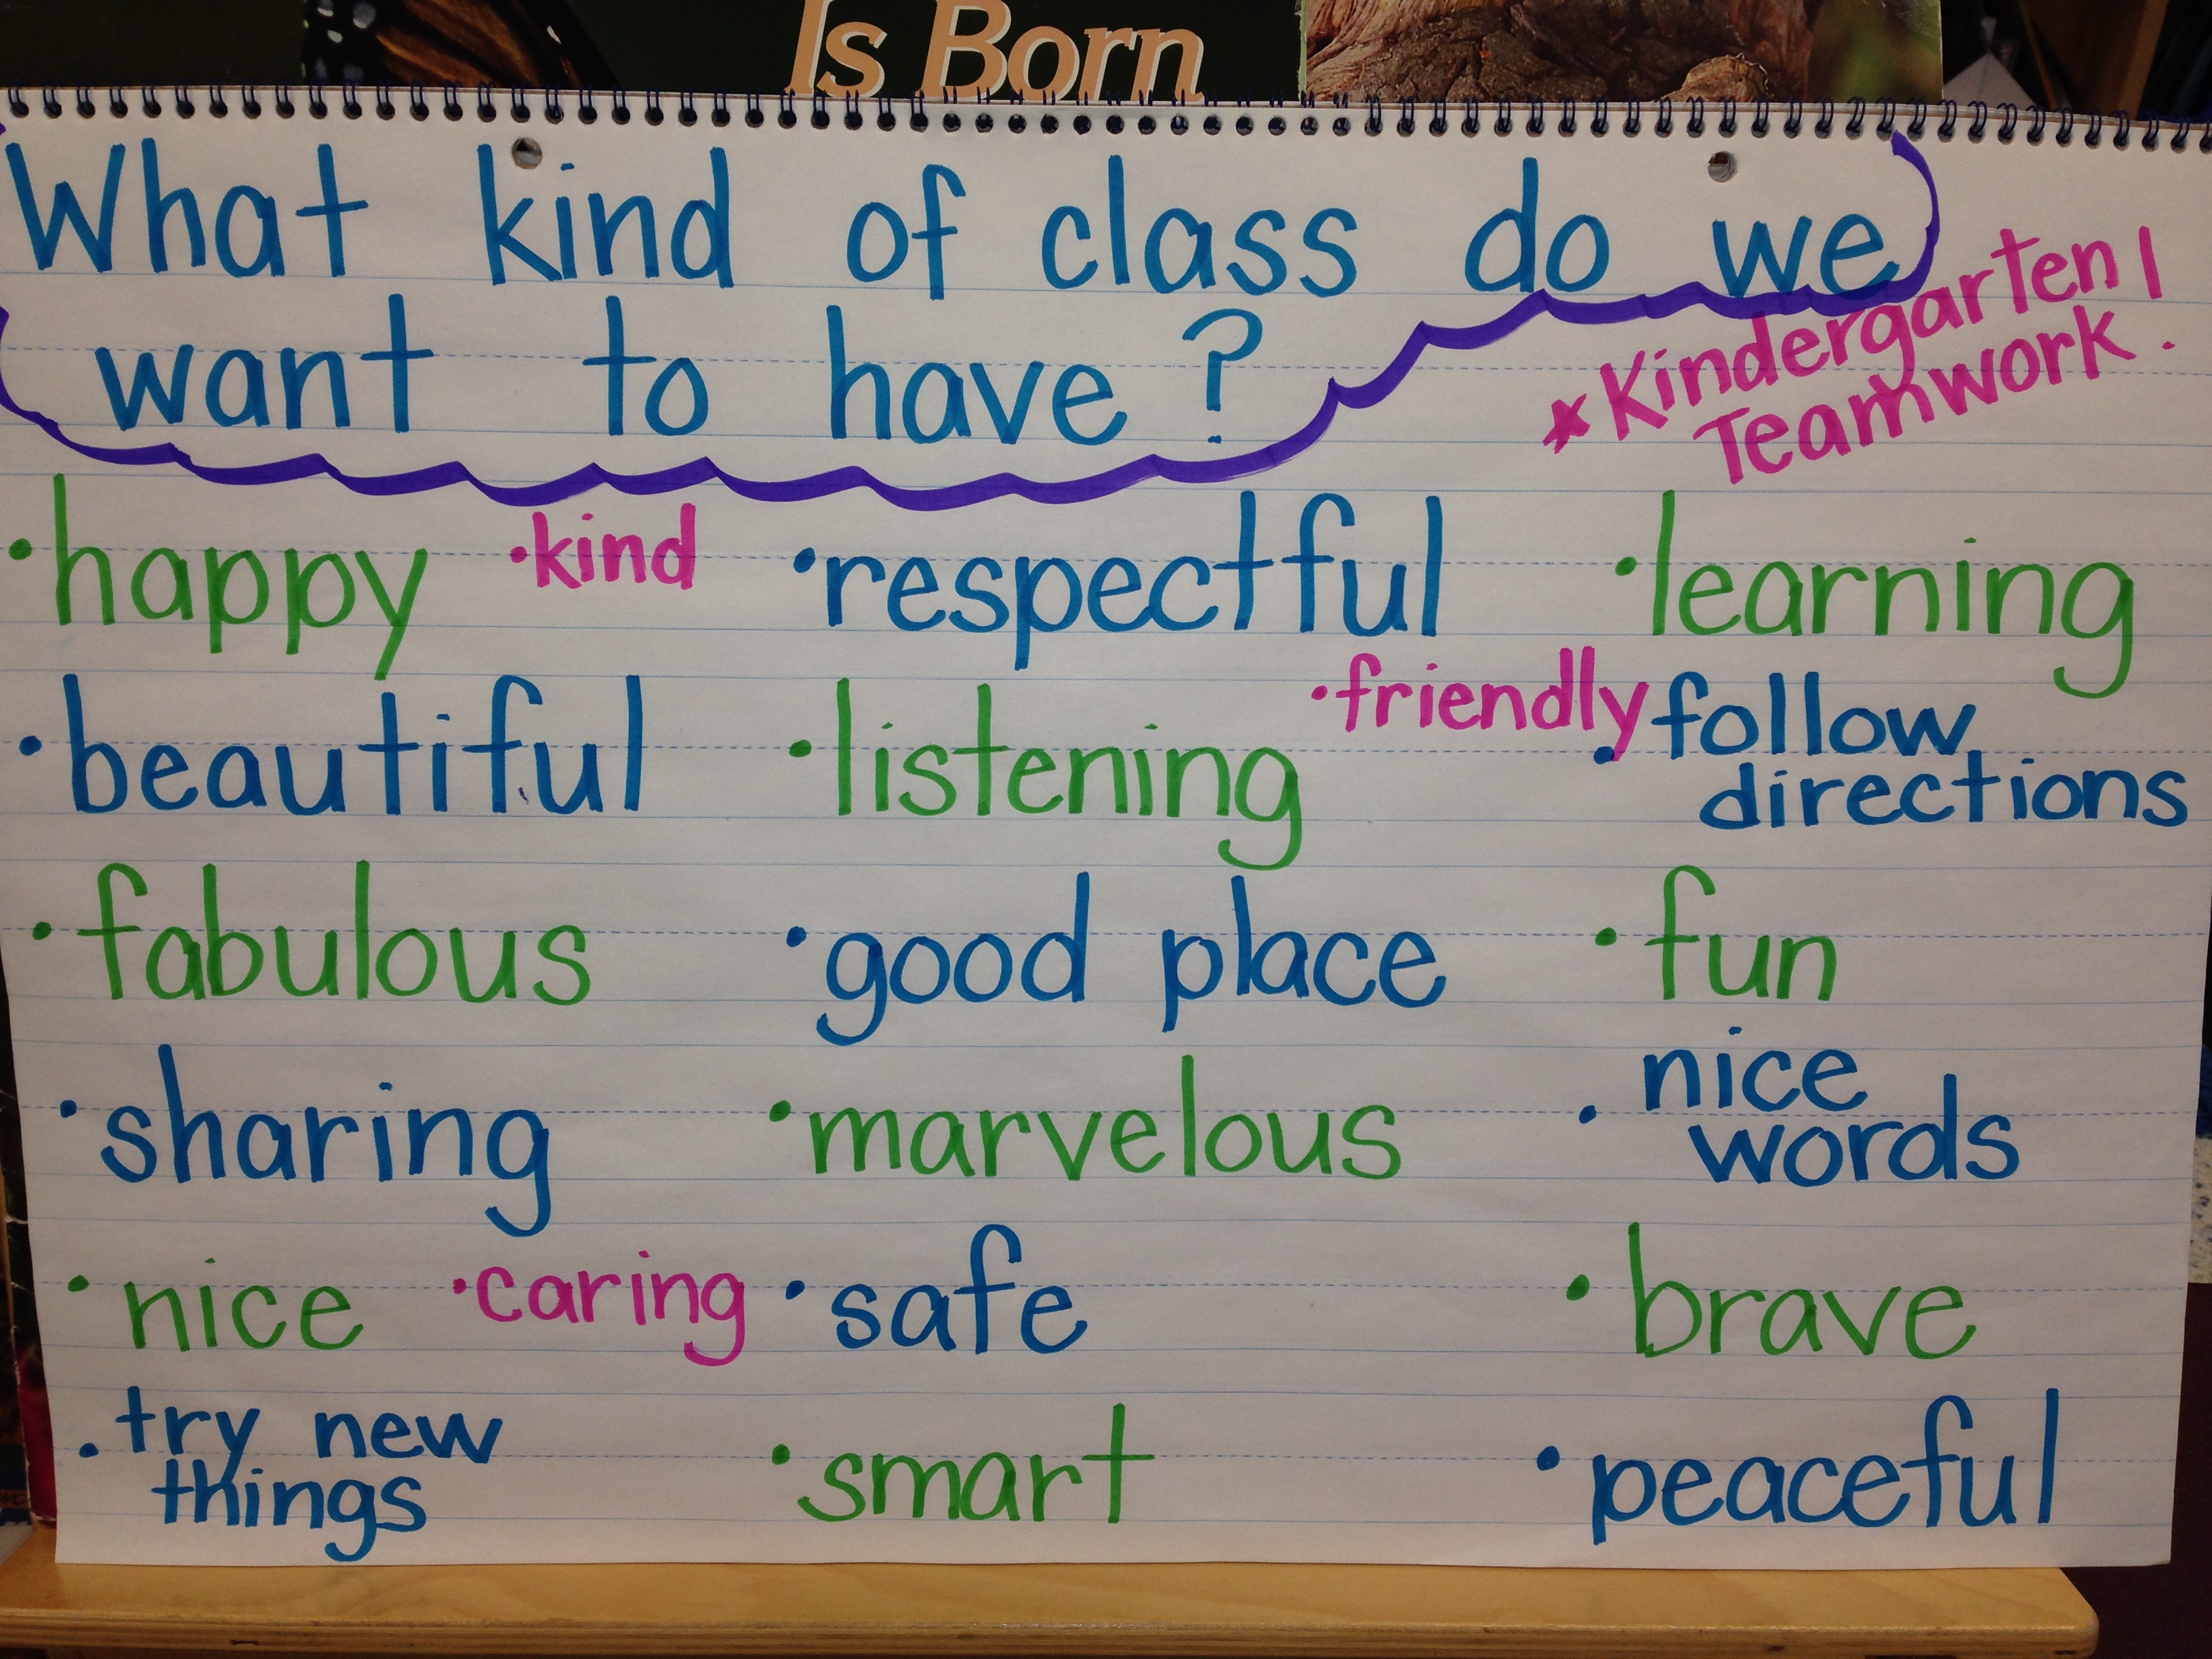 Is Born
What kind of class do we
want to have?
* Kindergarten!
Teamwork.
•happy •kind •respectful •learning
•beautiful •listening •friendly •follow
directions
•fabulous •good place •fun
•sharing •marvelous •nice
words
•nice •caring •safe •brave
•try new
things
•smart •peaceful